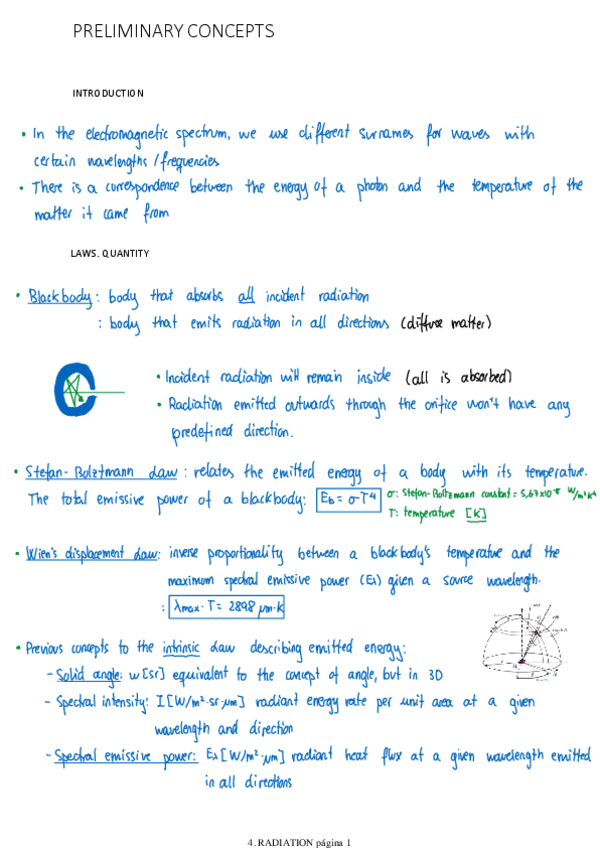 PRELIMINARY CONCEPTS
INTRODUCTION
• In the electromagnetic spectrum, we use different surnames for waves with
certain wavelengths/frequencies
• There is a correspondence between the energy of a photon and the temperature of the
matter it came from
LAWS. QUANTITY
• Blackbody: body that absorbs all incident radiation
: body that emits radiation in all directions (diffuse matter)
• Incident radiation will remain inside (all is absorbed)
• Radiation emitted outwards through the orifice won't have any
predefined direction.
• Stefan-Bolztmann Law: relates the emitted energy of a body with its temperature.
The total emissive power of a blackbody: Eb = σ·T⁴ σ: Stefan-Boltzmann constant = 5,67x10⁻⁸ W/m²K⁴
T: temperature [K]
• Wien's displacement Law: inverse proportionality between a blackbody's temperature and the
maximum spectral emissive power (Eλ) given a source wavelength.
: λmax · T = 2898 μm·K
• Previous concepts to the intrinsic Law describing emitted energy:
- Solid angle: w [sr] equivalent to the concept of angle, but in 3D
- Spectral intensity: I [W/m²·sr·μm] radiant energy rate per unit area at a given
wavelength and direction
- Spectral emissive power: Eλ [W/m²·μm] radiant heat flux at a given wavelength emitted
in all directions
4. RADIATION página 1